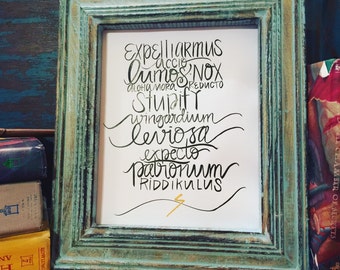 EXPELLIARMUS
accio
lumos NOX
alohamora REDUCTO
STUPIFY
wingardium
leviosa
expecto
patronum
RIDDIKULUS